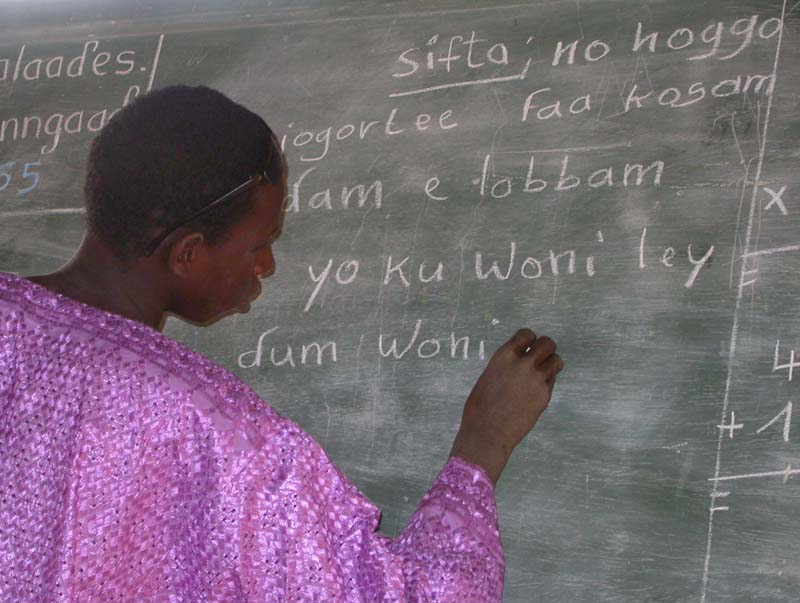 alaaɗes.
nngaaɓ
55
sifta; no hoggo
jogortee faa kosam
ɗam e lobbam
yo ku woni ley
ɗum woni
x
=
4
+ 1
=